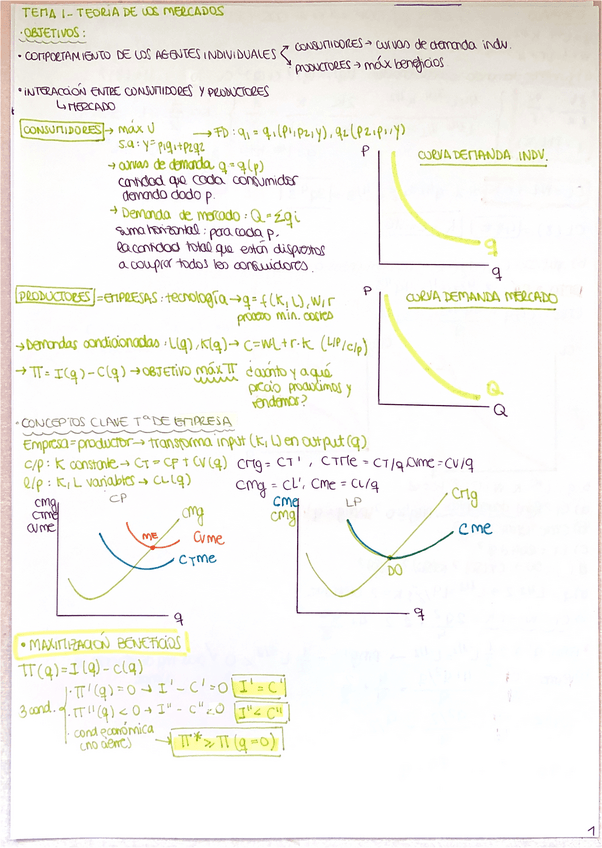 TEMA 1 - TEORIA DE LOS MERCADOS
· OBJETIVOS:
· COMPORTAMIENTO DE LOS AGENTES INDIVIDUALES
CONSUMIDORES → curvas de demanda indv.
PRODUCTORES → máx beneficios
· INTERACCIÓN ENTRE CONSUMIDORES Y PRODUCTORES
↳ MERCADO
CONSUMIDORES → máx U → FD: q1 = q1(p1,p2,y), q2(p2,p1,y)
s.a: y = p1q1+p2q2
→ curvas de demanda q = q(p)
cantidad que cada consumidor
demanda dado p.
→ Demanda de mercado: Q = Σqi
suma horizontal: para cada p,
la cantidad total que están dispuestos
a comprar todos los consumidores.
P
CURVA DEMANDA INDV.
q
q
PRODUCTORES = EMPRESAS: tecnología → q = f(K,L), w,r
proceso min. costes
→ Demandas condicionadas: L(q), K(q) → C = WL + r·K (L/P/C/P)
→ π = I(q) - C(q) → OBJETIVO máx π ¿cuánto y a qué
precio producimos y
vendemos?
P
CURVA DEMANDA MERCADO
Q
Q
· CONCEPTOS CLAVE Tª DE EMPRESA
Empresa = productor → transforma input (K,L) en output (q)
C/P: K constante → CT = CF + CV(q) CMg = CT', CTMe = CT/q, CVMe = CV/q
L/P: K,L variables → CL(q) CMg = CL', CMe = CL/q
CMg
CTMe
CVMe
CP
CMg
ME
CVMe
CTMe
q
CMe
CMg
LP
CMg
CMe
DO
q
· MAXIMIZACIÓN BENEFICIOS
π(q) = I(q) - C(q)
3 cond.
· π'(q) = 0 → I' - C' = 0 I' = C'
· π''(q) < 0 → I'' - C'' < 0 I'' < C''
· cond económica
(no cierre) → π* ≥ π(q=0)
1